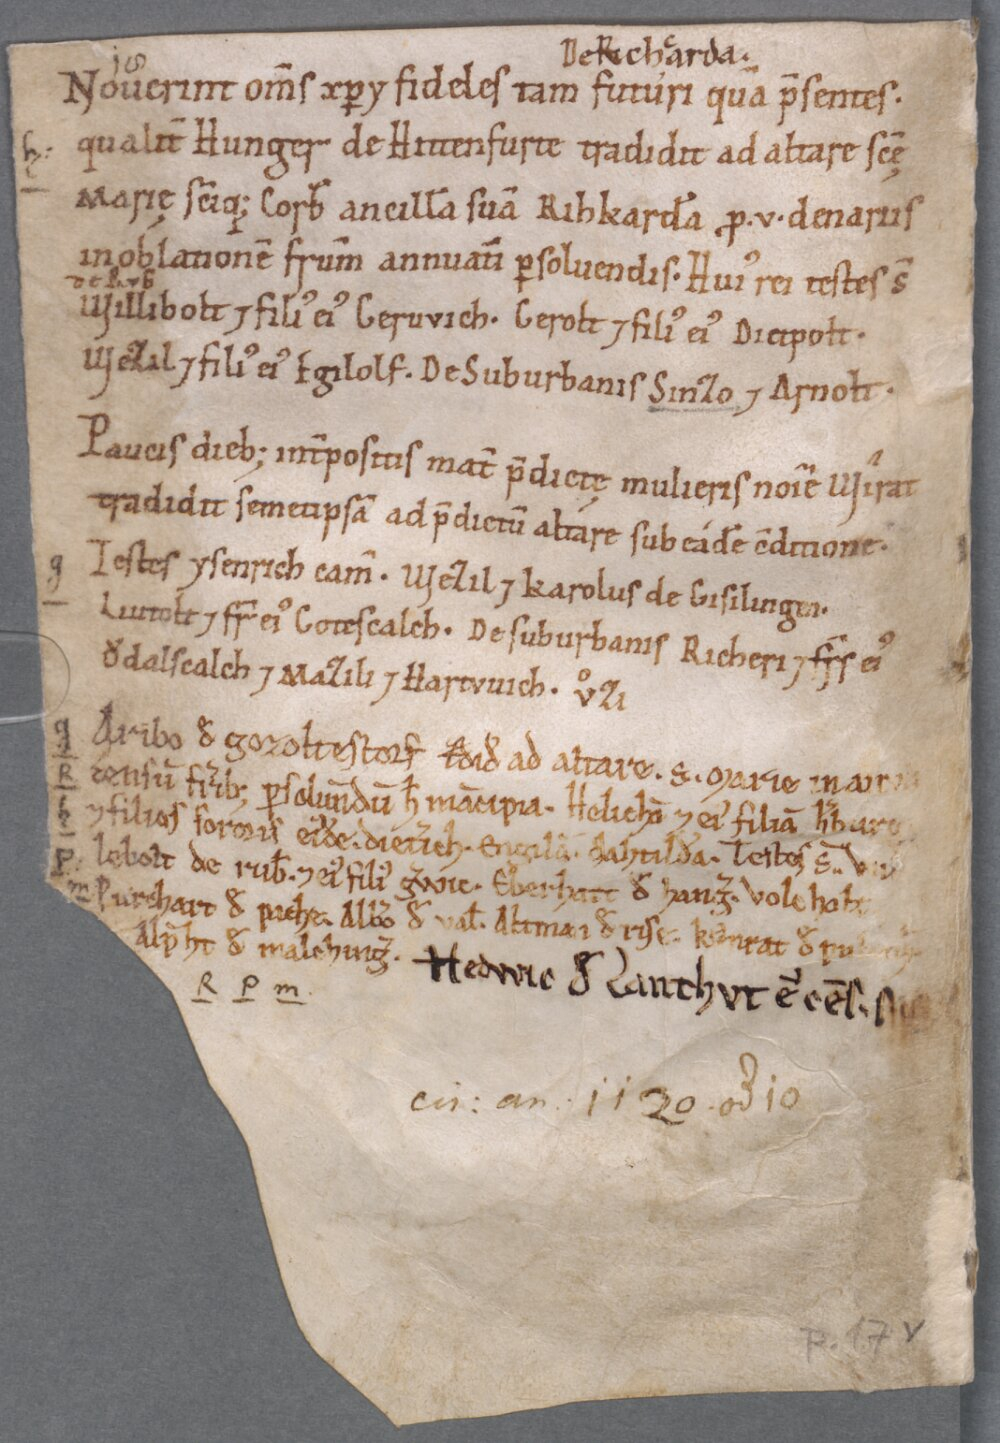 De Richarda.
18
Nouerint om̄s xp̄y fideles tam futuri quā p̄sentes.
h. qualit̄ Hunger de Hittenfurte tradidit ad altare scē
Marię sciq; Corb̄ ancillā suā Rihkardā p̱.v. denariis
in oblationē frūm annuatī p̱soluendis. Hui᾽ rei testes s̄
de h. vb
Willibolt ⁊ fili᾽ ei᾽ Geruvich. Gerolt ⁊ fili᾽ ei᾽ Dietpolt.
Wezil ⁊ fili᾽ ei᾽ Egilolf. De Suburbanis Sinzo ⁊ Arnolt.
Paucis dieb; int̄positis mat̄ p̄dictę mulieris noīe Wîrat
tradidit semetipsā ad p̄dictū altare sub eádē c̄ditione.
g Testes ysenrich cam̄. Wezil ⁊ karolus de Gisilingen.
Liutolt ⁊ fr̄ ei᾽ Gotescalch. De suburbanis Richeri ⁊ fr̄ ei᾽
Ŏdalscalch ⁊ Mazili ⁊ Hartvuich. v̊zi
g Aribo đ gozoltestorf ad altare. S. Marie in
R censū fr̄ib; p̱soluēdū h̄ mācipia. Helichā ⁊ ei᾽ filiā
h ⁊ filios sororis eiᵈdē. dietrich. Engilā. Mahtildā. Testes s̄.
P. lebolt de rub̄. ⁊ ei᾽ fili᾽ Eberhart đ hanḡ. Volcholt
m Purchart đ pache. Alb̄o đ val. Altman đ rise. kv̊nrat đ
Alp̄ht đ malching̃.
Hedwic đ Lantchvt ē cēs.
R P m.
cir: an. 1120. od 10
P. 17 v